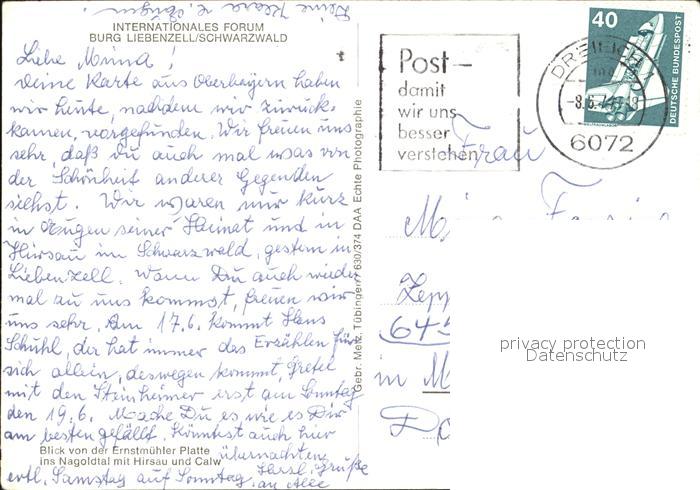 Deine Klara u. Eugen.
INTERNATIONALES FORUM
BURG LIEBENZELL/SCHWARZWALD
Liebe Minna!
Deine Karte aus Oberbayern haben
wir heute, nachdem wir zurück-
kamen, vorgefunden. Wir freuen uns
sehr, daß du auch mal was von
der Schönheit anderer Gegenden
siehst. Wir waren nur kurz
in Eugen seiner Heimat und in
Hirsau im Schwarzwald, gestern in
Liebenzell. Wann Du auch wieder
mal zu uns kommst, freuen wir
uns sehr. Am 17.6. kommt Hans
Schühl, der hat immer das Erzählen für
sich allein, deswegen kommt Gretel
mit den Steinheimer erst am Sonntag
den 19.6. Mache Du es wie es Dir
am besten gefällt. Könntest auch hier
übernachten
evtl. Samstag auf Sonntag.
Herzl. Grüße
an Alle
Blick von der Ernstmühler Platte
ins Nagoldtal mit Hirsau und Calw
Gebr. Metz, Tübingen 630/374 DAA Echte Photographie
Post –
damit
wir uns
besser
verstehen
DREIEICH
6072
40
DEUTSCHE BUNDESPOST
Frau
Zepp
645
in M
privacy protection
Datenschutz